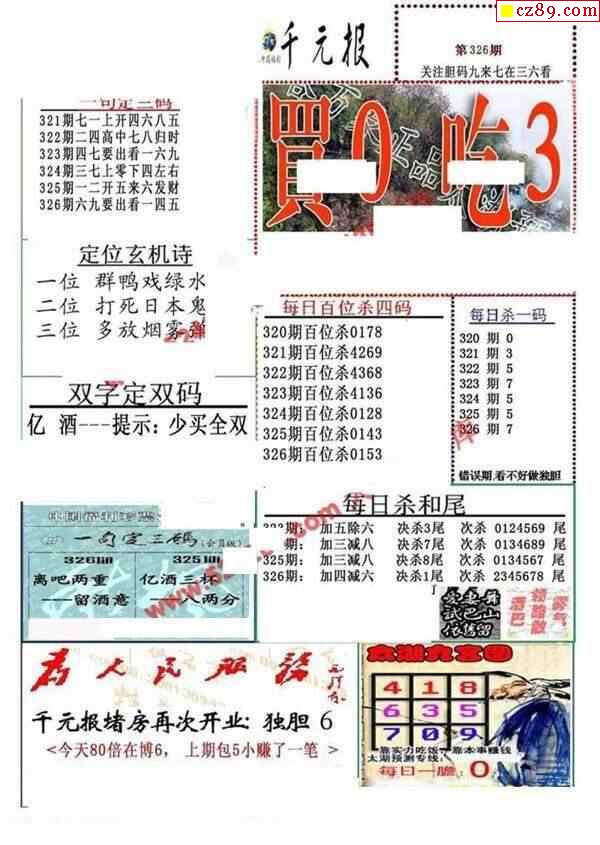 cz89.com
千元报
第326期
关注胆码九来七在三六看
買0吃3
一句定三码
321期七一上开四六八五
322期二四高中七八归时
323期四七要出看一六九
324期三七上零下四左右
325期一二开五来六发财
326期六九要出看一四五
定位玄机诗
一位 群鸭戏绿水
二位 打死日本鬼
三位 多放烟雾弹
双字定双码
亿 酒---提示: 少买全双
每日百位杀四码
320期百位杀0178
321期百位杀4269
322期百位杀4368
323期百位杀4136
324期百位杀0128
325期百位杀0143
326期百位杀0153
每日杀一码
320 期 0
321 期 3
322 期 5
323 期 7
324 期 5
325 期 5
326 期 7
错误期,看不好做独胆
一句定三码(会员版)
326期 325期
离吧两重 亿酒三杯
——留酒意 ——八两分
每日杀和尾
期: 加五除六 决杀3尾 次杀 0124569 尾
期: 加三减八 决杀7尾 次杀 0134689 尾
325期: 加三减八 决杀8尾 次杀 0134567 尾
326期: 加四减六 决杀1尾 次杀 2345678 尾
为人民服务
千元报堵房再次开业: 独胆 6
<今天80倍在博6, 上期包5小赚了一笔 >
太湖九宫图
4 1 8
6 3 5
7 0 9
靠实力吃饭, 靠本事赚钱
太湖预测专线:
每日一胆: 0